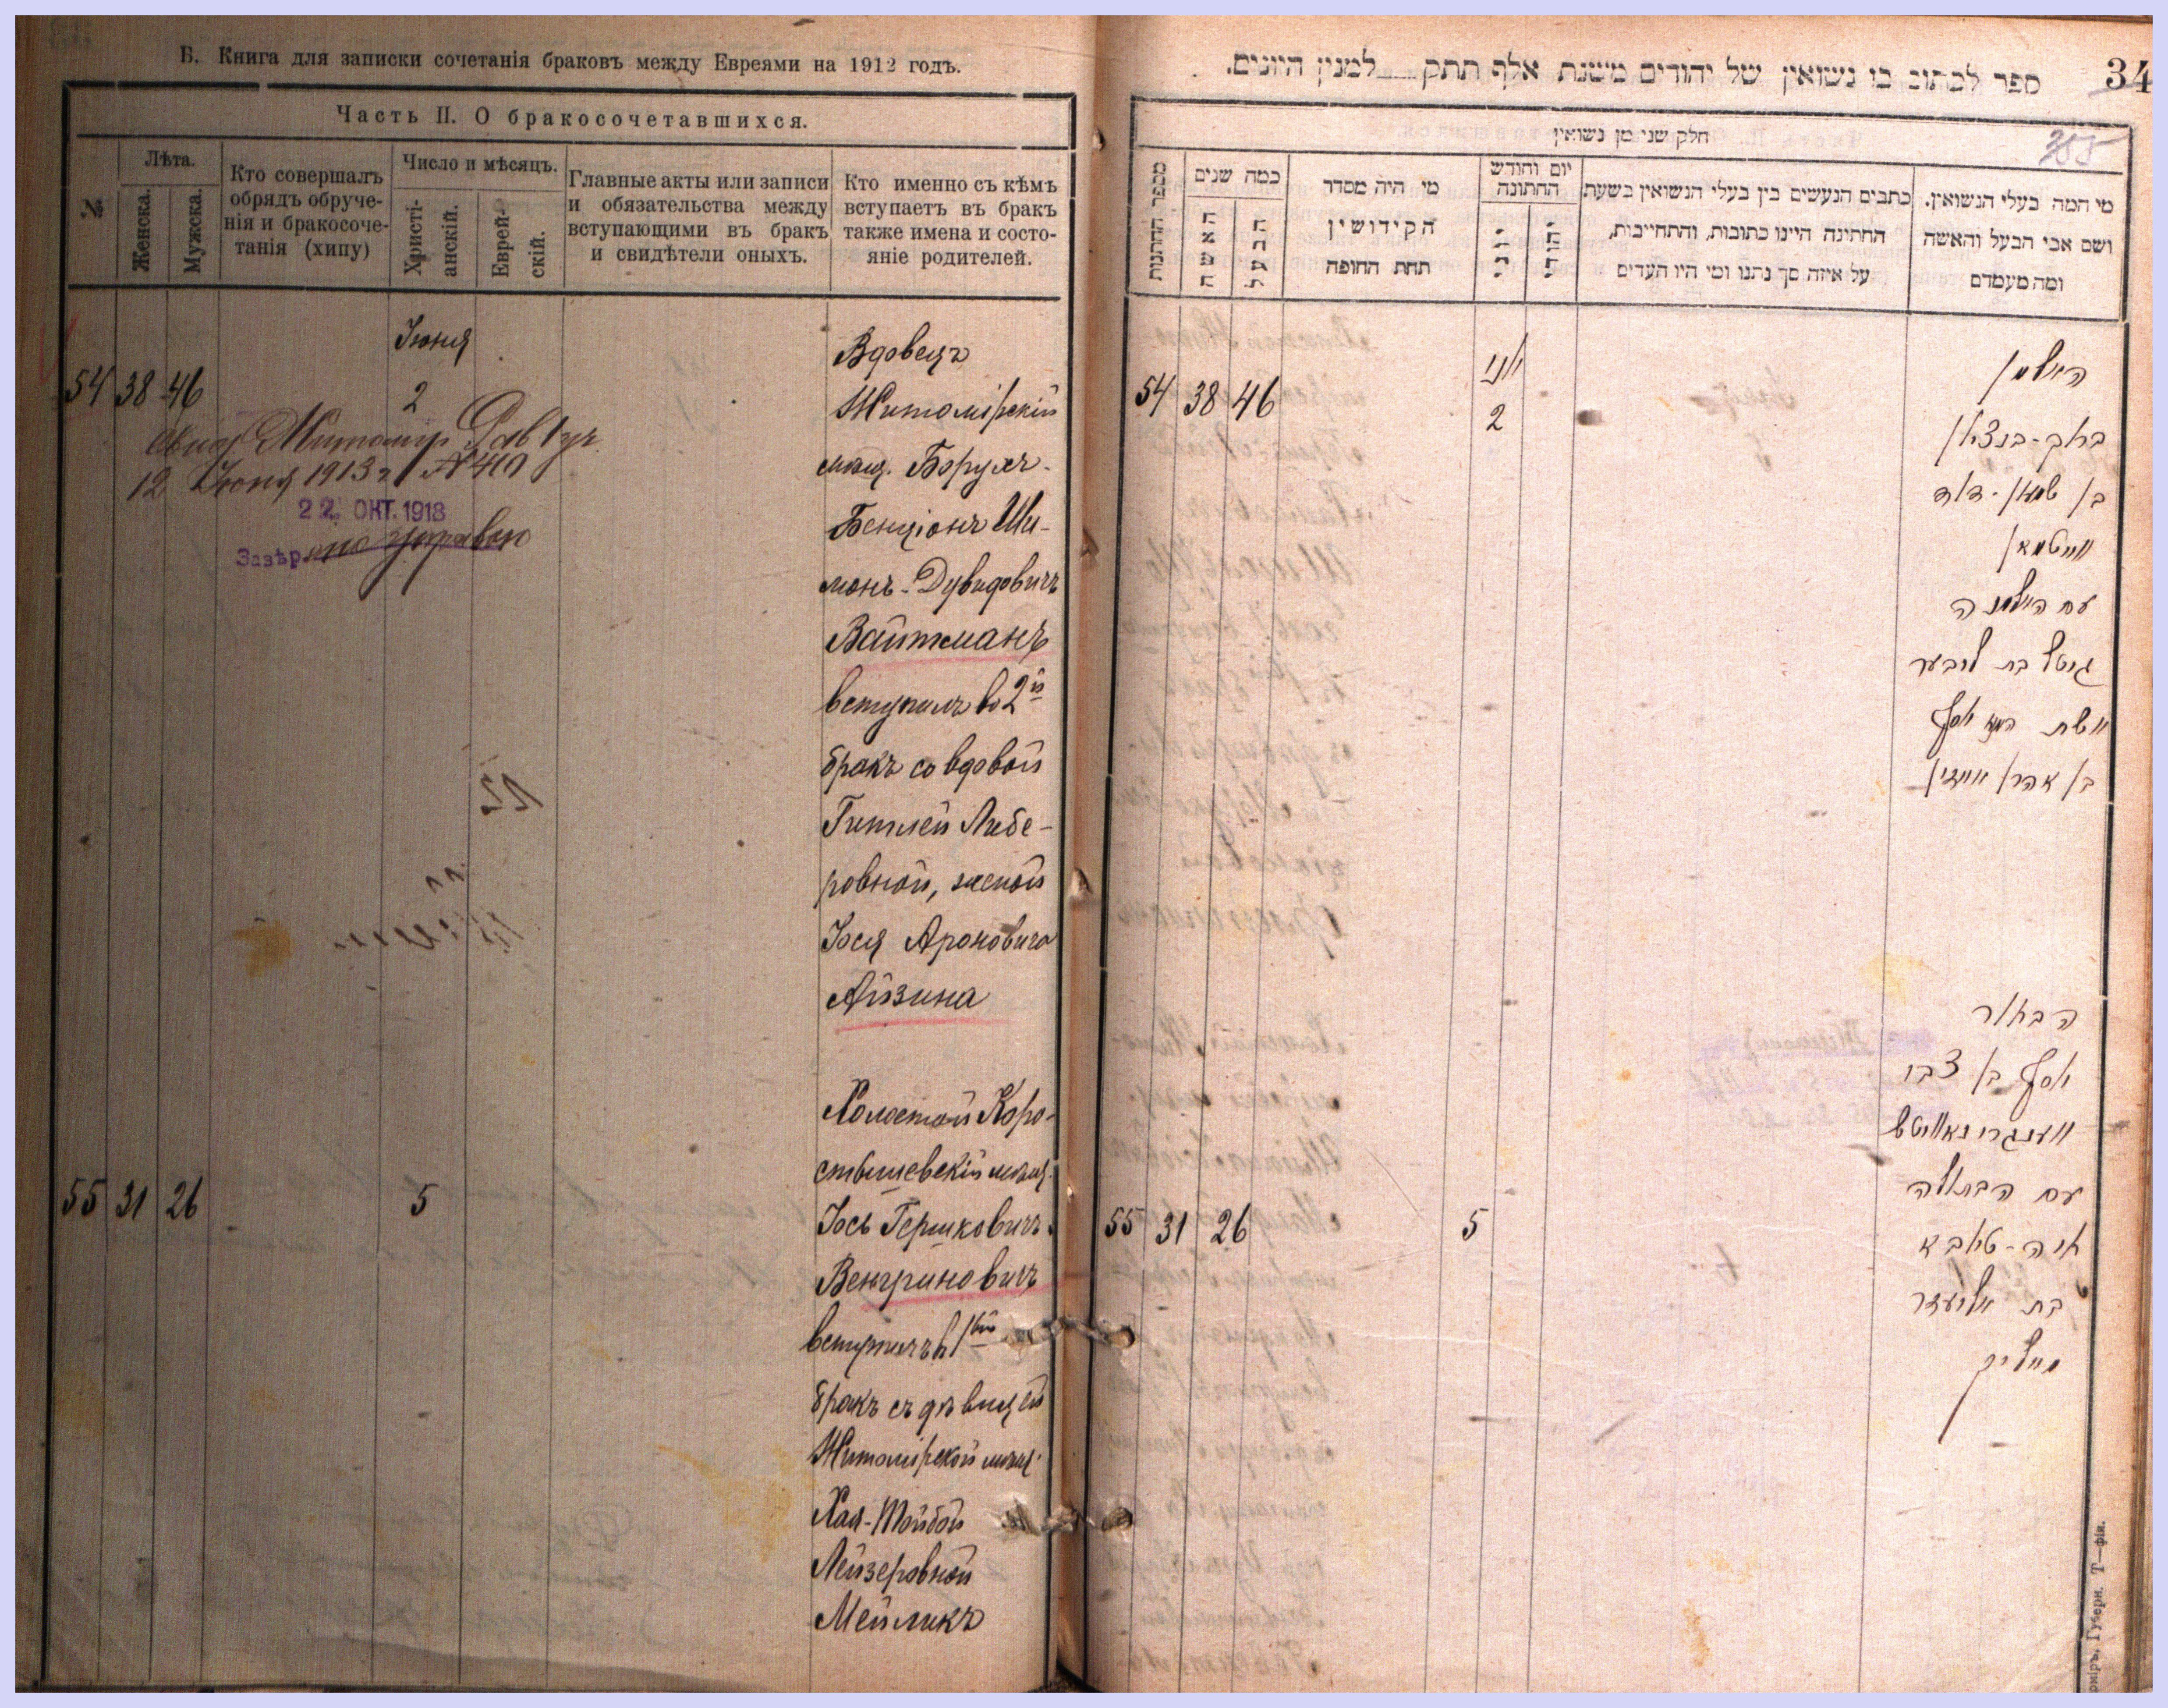 Б. Книга для записки сочетанія браковъ между Евреями на 1912 годъ.
Часть II. О бракосочетавшихся.
№
Лѣта.
Женска.
Мужска.
Кто совершалъ
обрядъ обруче-
нія и бракосоче-
танія (хипу)
Число и мѣсяцъ.
Христі-
анскій.
Еврей-
скій.
Главные акты или записи
и обязательства между
вступающими въ бракъ
и свидѣтели оныхъ.
Кто именно съ кѣмъ
вступаетъ въ бракъ
также имена и состо-
яніе родителей.
Іюня
54 38 46 2
12 Іюня 1913 г.
22. ОКТ. 1918
Вдовецъ
Житомірскій
мѣщ. Борухъ-
Бенціонъ Ши-
монъ-Дувидовичъ
Вайтманъ
вступилъ во 2й
бракъ со вдовой
Гитлей Либе-
ровной, женой
Іося Ароновича
Айзина
55 31 26 5
Холостой Коро-
стышевскій мѣщ.
Іось Гершковичъ
Венгриновичъ
вступилъ въ 1й
бракъ съ дѣвицей
Житомірской мѣщ.
Хая-Тойбой
Лейзеровной
Мейликъ
ספר לכתוב בו נשואין של יהודים משנת אלף תתק___למנין היונים.
34
חלק שני מן נשואין
מספר החתנות
כמה שנים
האשה
הבעל
מי היה מסדר
הקידושין
תחת החופה
יום וחודש
החתונה
יוני
יהודי
כתבים הנעשים בין בעלי הנשואין בשעת
החתינה היינו כתובות, והתחייבות,
על איזה סך נתנו ומי היו העדים
מי המה בעלי הנשואין.
ושם אבי הבעל והאשה
ומה מעמדם
יוני
54 38 46 2
האלמן
ברוך-בנציון
בן שמעון-דוד
ווייטמאן
עם האלמנה
גיטל בת ליבער
אשת יוסף
בן אהרן
הבחור
יוסף בן צבי
ווענגרינאוויטש
עם הבתולה
55 31 26 5
חיה-טויבא
בת אליעזר
מייליק
Губерн. Т—фія.